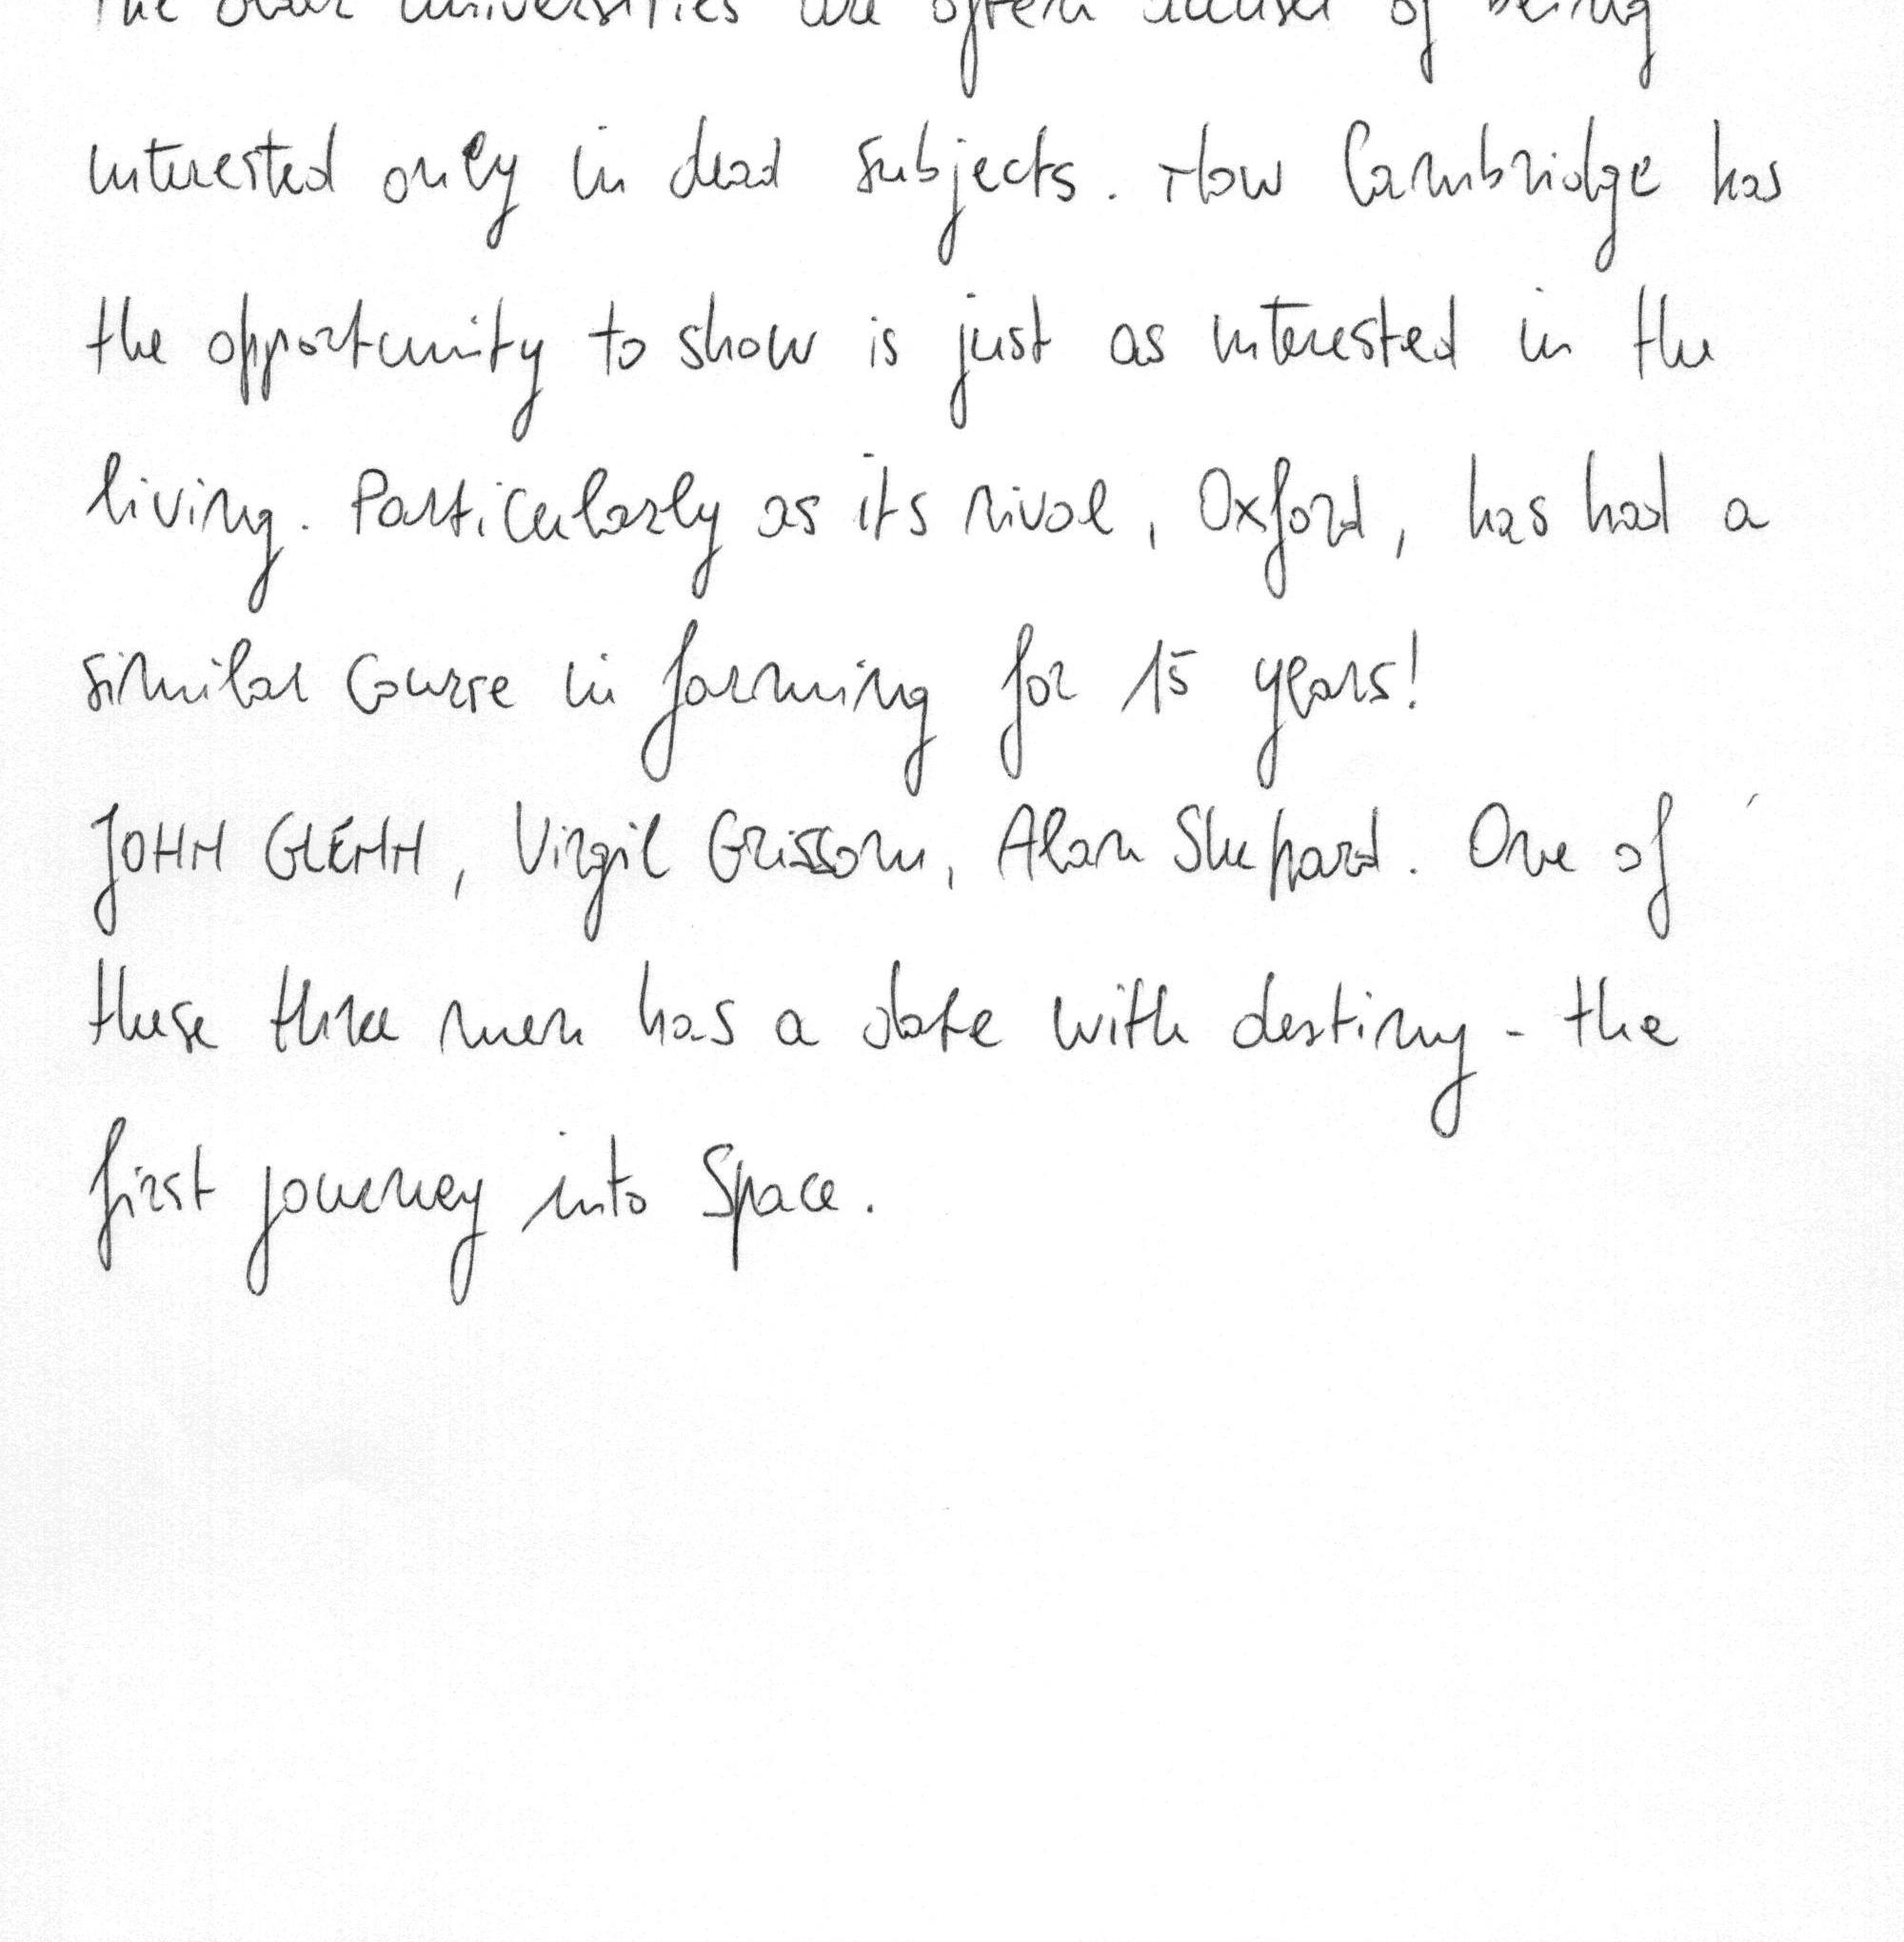 The older universities are often accused of being
interested only in dead subjects. Now Cambridge has
the opportunity to show is just as interested in the
living. Particularly as its rival, Oxford, has had a
similar course in farming for 15 years!
JOHN GLENN, Virgil Grissom, Alan Shepard. One of
these three men has a date with destiny - the
first journey into Space.